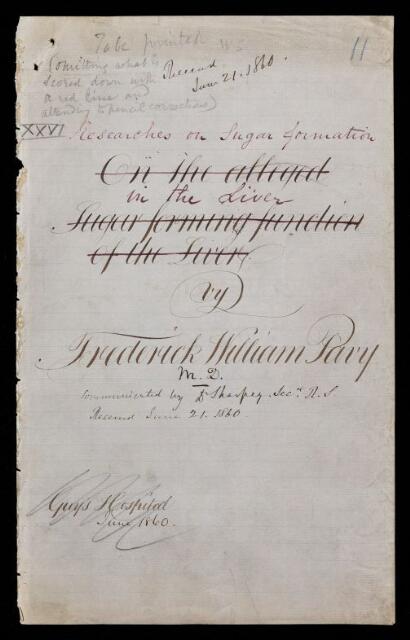 To be printed W S
11
(omitting what is
scored down with
a red line and
attending to pencil corrections)
Received
June 21. 1860.
XXVI Researches on Sugar formation
On the alleged
in the Liver
Sugar forming function
of the Liver
by
Frederick William Pavy
M. D.
Communicated by Dr Sharpey. Sec. R. S
Received June 21. 1860
Guys Hospital
June 1860.